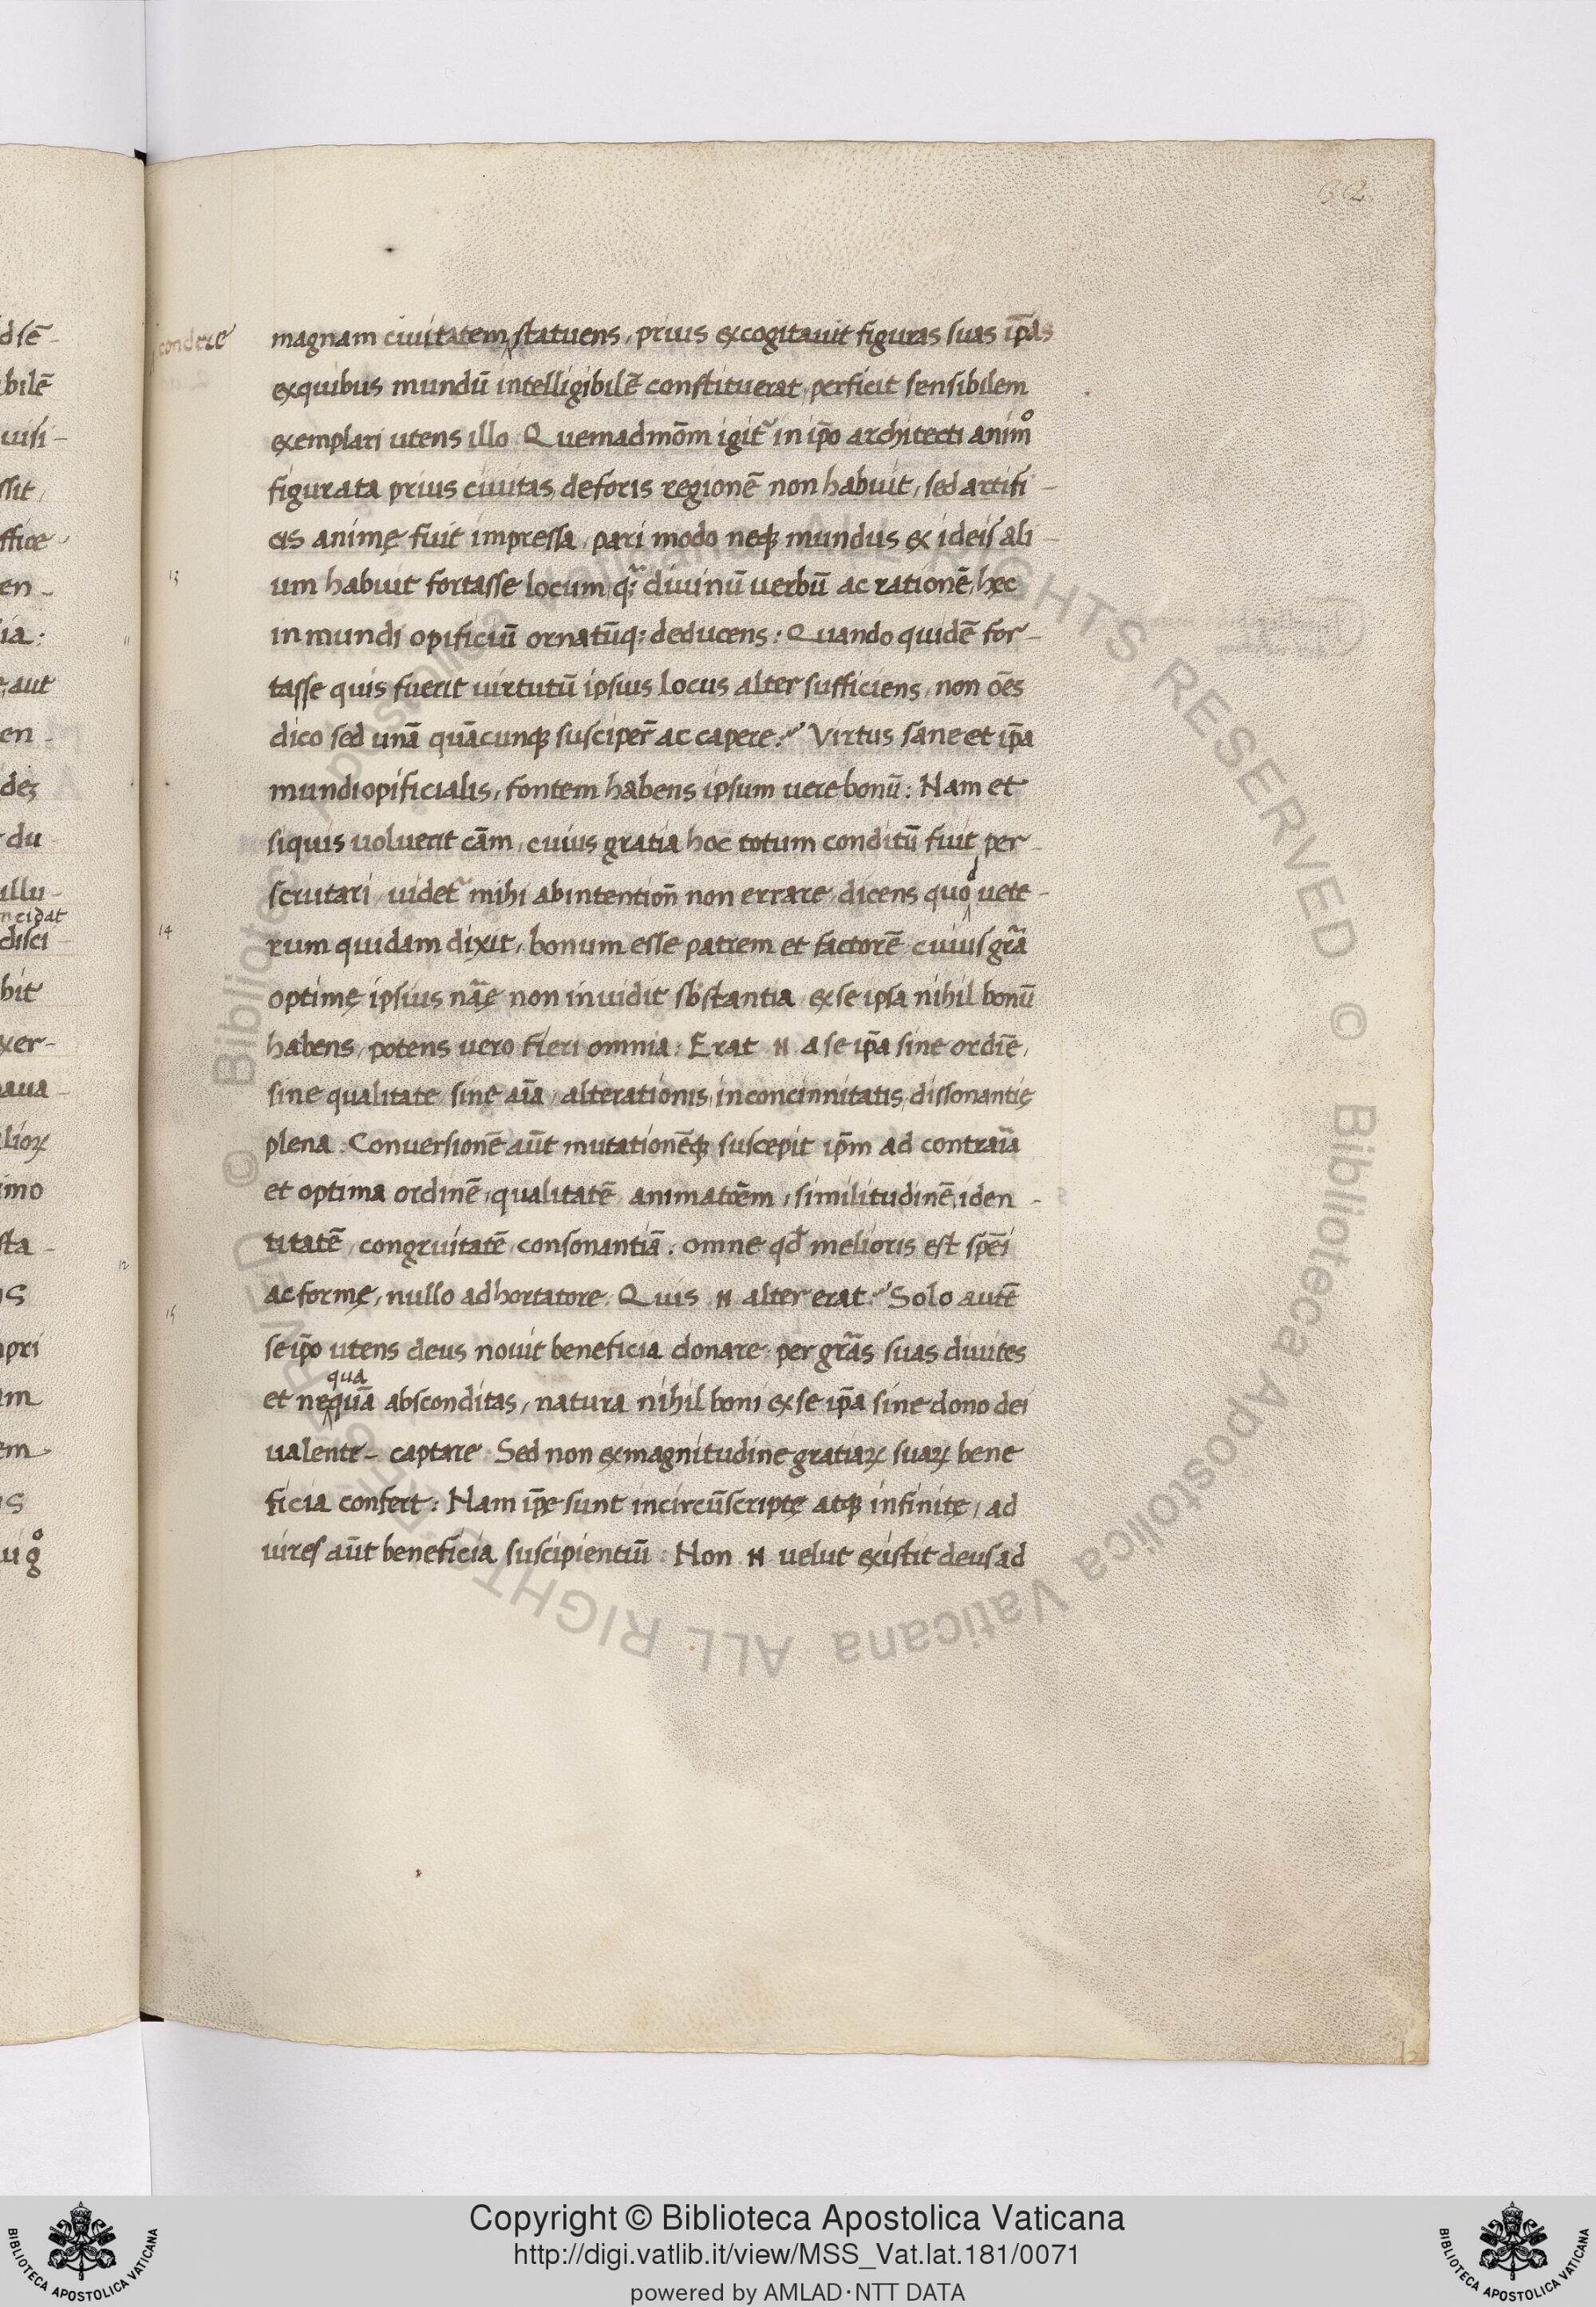 32
condere
magnam ciuitatem statuens, prius excogitauit figuras suas ip̄as
exquibus mundū intelligibilē constituerat perficit sensibilem
exemplari utens illo. Quemadmōm igit᷑ in ip̄o architecti animo
figurata prius ciuitas, deforis regionē non habuit, sed artifi-
cis animę fuit impressa, pari modo neqꝫ mundus ex ideis ali-
13
um habuit fortasse locum, q̄ꝫ diuinū uerbū ac rationē, hęc
in mundi opificiū ornatūqꝫ deducens: Quando quidē for-
tasse quis fuerit uirtutū ipsius locus alter sufficiens, non oēs
dico sed unā quācunqꝫ susciper̄ ac capere? Virtus sane et ip̄a
mundiopificialis, fontem habens ipsum uere bonū: Nam et
siquis uoluerit cām, cuius gratia hoc totum conditū fuit per-
scrutari, uidet᷑ mihi abintention̄ non errare, dicens quod uete-
14
rum quidam dixit, bonum esse patrem et factorē cuius grā
optimę ipsius nāę non inuidit sb̄stantia, exse ipsa nihil bonū
habens, potens uero fieri omnia: Erat N a se ip̄a sine ordiē,
sine qualitate, sine aīa, alterationis, inconcinnitatis, dissonantię
plena. Conuersionē aūt mutationēqꝫ suscepit ip̄m ad contraīa
et optima ordinē, qualitatē, animatōem, similitudinē, iden-
titatē, congruitatē, consonantiā. omne qd̄ melioris est spēi
15
ac formę, nullo adhortatore. Quis N alter erat? Solo autē
se ip̄o utens deus nouit beneficia donare: per grās suas diuites
qua
et nequā absconditas, natura nihil boni exse ip̄a sine dono dei
ualente- captare. Sed non ex magnitudine gratiaꝝ suaꝝ bene
ficia confert: Nam ip̄ę sunt incircūscriptę atqꝫ infinitę, ad
uires aūt beneficia suscipientiū: Non N uelut existit deus ad
© Biblioteca Apostolica Vaticana ALL RIGHTS RESERVED © Biblioteca Apostolica Vaticana ALL RIGHTS RESERVED
Copyright © Biblioteca Apostolica Vaticana
http://digi.vatlib.it/view/MSS_Vat.lat.181/0071
powered by AMLAD·NTT DATA
BIBLIOTECA APOSTOLICA VATICANA
BIBLIOTECA APOSTOLICA VATICANA